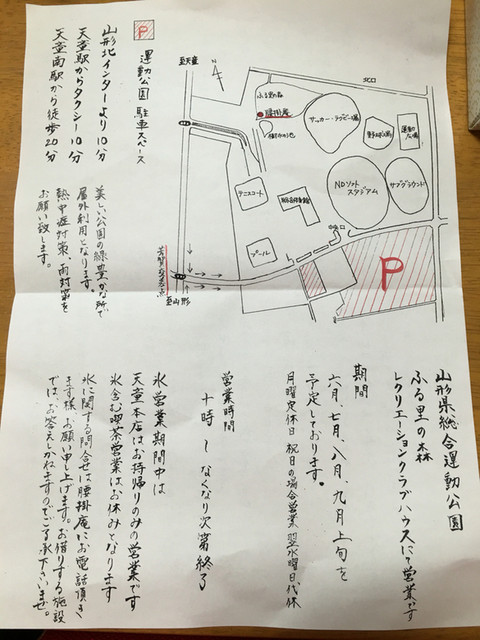 山形県総合運動公園
ふる里の森
レクリエーションクラブハウスにて営業です
期間
六月、七月、八月、九月上旬を
予定しております。
月曜定休日 祝日の場合営業 翌水曜日代休
営業時間
十時～なくなり次第終了
氷営業期間中は
天童本店はお持帰りのみの営業です
氷含む喫茶営業はお休みとなります
氷に関する問合せは腰掛庵にお電話頂き
ます様、お願い申し上げます。お借りする施設
では、お答えしかねますのでご了承下さいませ。
P
運動公園 駐車スペース
山形北インターより10分
天童駅からタクシー10分
天童南駅から徒歩20分
美しい公園の緑豊かな所で
屋外利用となります。
熱中症対策、雨対策を
お願い致します。
至天童
N
北口
ふる里の森
腰掛庵
サッカー・ラグビー場
野球場
運動広場
テニスコート
NDソフトスタジアム
サブグラウンド
プール
中央口
P
至山形